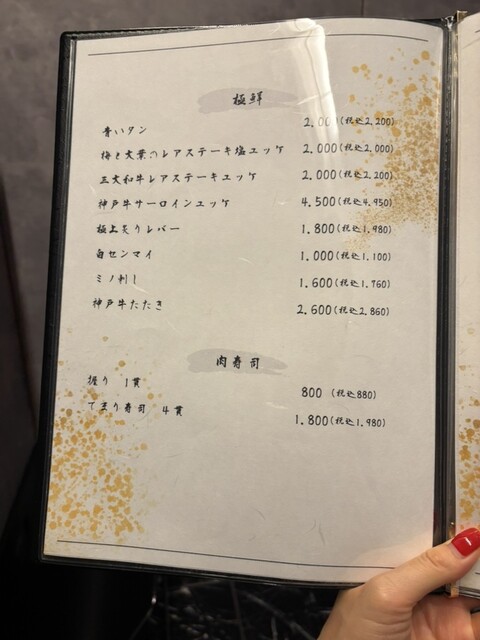 極鮮
青いタン 2.000(税込2.200)
梅と大葉のレアステーキ塩ユッケ 2.000(税込2.000)
三大和牛レアステーキユッケ 2.000(税込2.200)
神戸牛サーロインユッケ 4.500(税込4.950)
極上炙りレバー 1.800(税込1.980)
白センマイ 1.000(税込1.100)
ミノ刺し 1.600(税込1.760)
神戸牛たたき 2.600(税込2.860)
肉寿司
握り 1貫 800 (税込880)
てまり寿司 4貫 1.800(税込1.980)